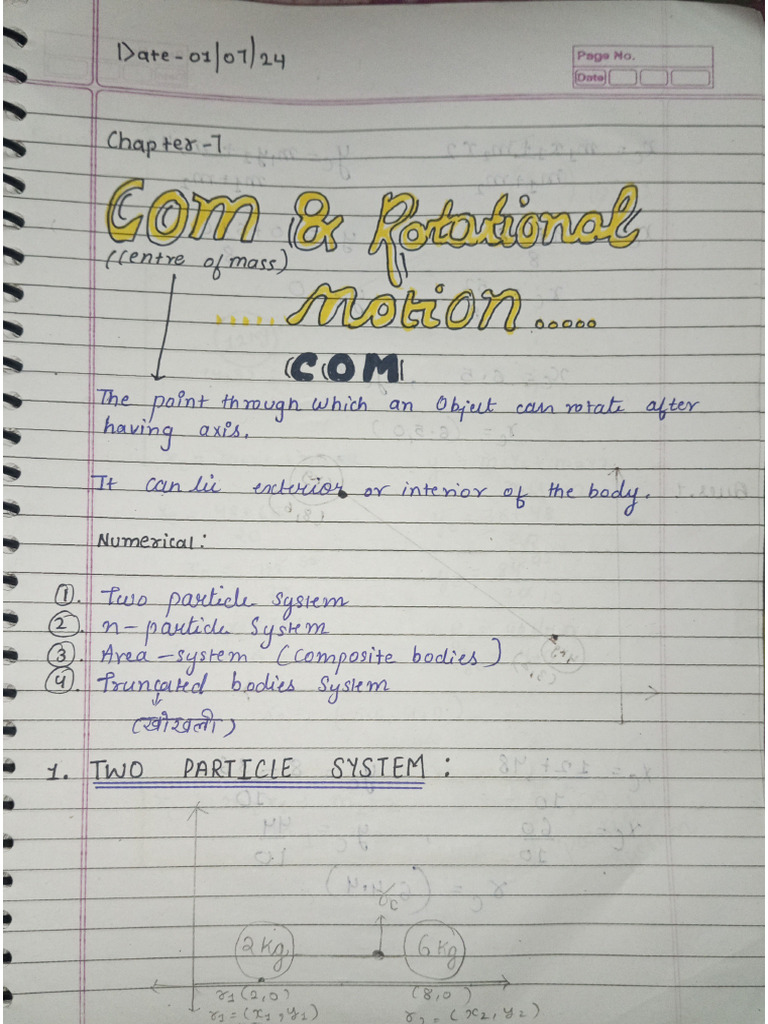 Date - 01/07/24
Page No.
Date
Chapter-7
COM & Rotational
(Centre of mass)
Motion.....
COM
The point through which an Object can rotate after
having axis.
It can lie exterior or interior of the body.
Numerical:
① Two particle system
② n-particle System
③ Area-system (composite bodies)
④ Truncated bodies System
(खोखली)
1. TWO PARTICLE SYSTEM:
2Kg 6Kg
r1(2,0) (8,0)
r1=(x1,y1) r2=(x2,y2)